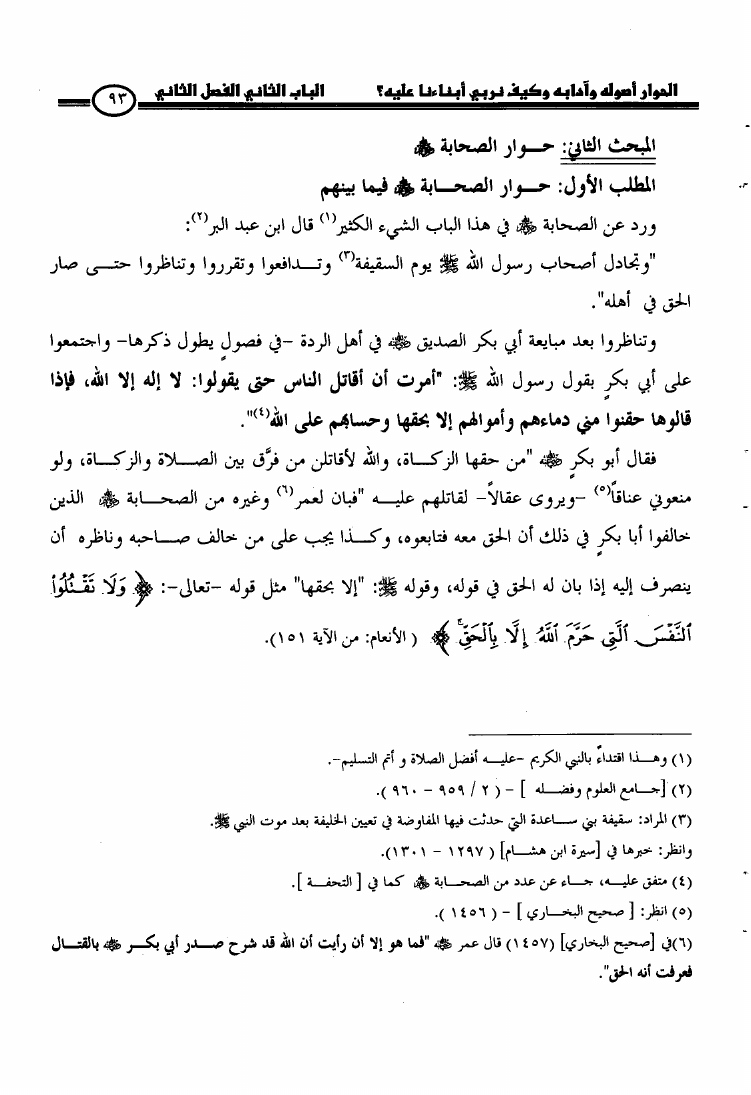 الحوار أصوله وآدابه وكيف نربي أبناءنا عليه؟ الباب الثاني الفصل الثاني ٩٣
المبحث الثاني: حـوار الصحابة ﷺ
المطلب الأول: حـوار الصحـابة ﷺ فيما بينهم
ورد عن الصحابة ﷺ في هذا الباب الشيء الكثير(١) قال ابن عبد البر(٢):
"وتجادل أصحاب رسول الله ﷺ يوم السقيفة(٣) وتـدافعوا وتقرروا وتناظروا حتـى صار
الحق في أهله".
وتناظروا بعد مبايعة أبي بكر الصديق ﷺ في أهل الردة -في فصولٍ يطول ذكرها- واجتمعوا
على أبي بكرٍ بقول رسول الله ﷺ: "أمرت أن أقاتل الناس حتى يقولوا: لا إله إلا الله، فإذا
قالوها حقنوا مني دماءهم وأموالهم إلا بحقها وحسابهم على الله(٤)".
فقال أبو بكرٍ ﷺ "من حقها الزكـاة، والله لأقاتلن من فرَّق بين الصـلاة والزكـاة، ولو
منعوني عناقاً(٥) -ويروى عقالاً- لقاتلهم عليـه "فبان لعمر(٦) وغيره من الصحـابة ﷺ الذين
خالفوا أبا بكرٍ في ذلك أن الحق معه فتابعوه، وكـذا يجب على من خالف صـاحبه وناظره أن
ينصرف إليه إذا بان له الحق في قوله، وقوله ﷺ: "إلا بحقها" مثل قوله -تعالى-: ﴿ وَلَا تَقْتُلُوا۟
ٱلنَّفْسَ ٱلَّتِى حَرَّمَ ٱللَّهُ إِلَّا بِٱلْحَقِّ ۚ ﴾ ( الأنعام: من الآية ١٥١).
(١) وهـذا اقتداءً بالنبي الكريم -عليـه أفضل الصلاة و أتم التسليم-.
(٢) [جـامع العلوم وفضـله ] - ( ٢ / ٩٥٩ - ٩٦٠ ).
(٣) المراد: سقيفة بني سـاعدة التي حدثت فيها المفاوضة في تعيين الخليفة بعد موت النبي ﷺ.
وانظر: خبرها في [سيرة ابن هشـام] ( ١٢٩٧ - ١٣٠١).
(٤) متفق عليـه، جـاء عن عدد من الصحـابة ﷺ كما في [ التحفـة ].
(٥) انظر: [ صحيح البخـاري ] - ( ١٤٥٦ ).
(٦)في [صحيح البخاري] (١٤٥٧) قال عمر ﷺ "فما هو إلا أن رأيت أن الله قد شرح صـدر أبي بكـر ﷺ بالقتـال
فعرفت أنه الحق".